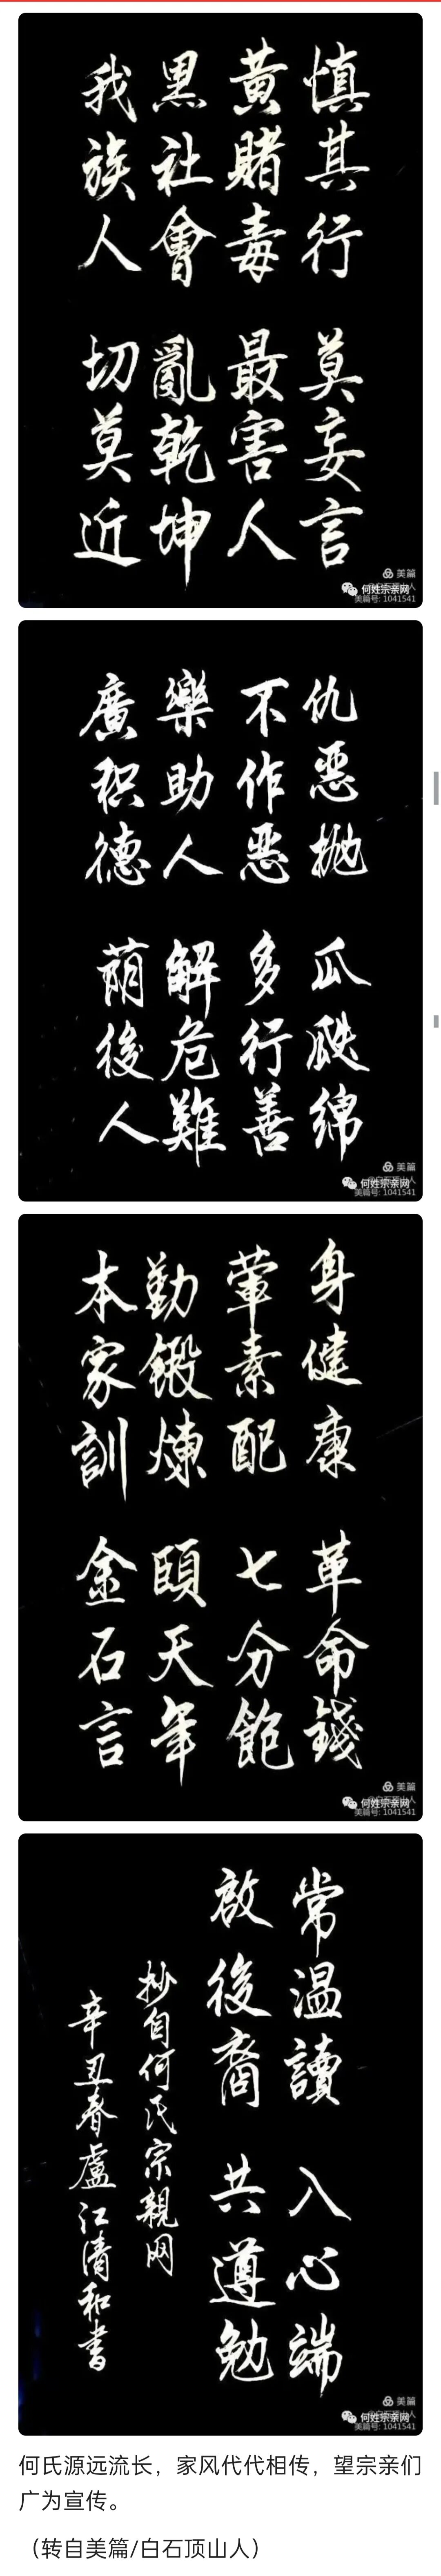 慎其行 莫妄言
黄赌毒 最害人
黑社會 亂乾坤
我族人 切莫近
美篇
何姓宗亲网
美篇号: 1041541
仇恶抛 瓜瓞绵
不作恶 多行善
樂助人 解危難
廣积德 荫後人
美篇
何姓宗亲网
美篇号: 1041541
身健康 革命錢
荤素配 七分飽
勤鍛煉 頤天年
本家訓 金石言
美篇
何姓宗亲网
美篇号: 1041541
常温讀 入心端
啟後裔 共遵勉
抄自何氏宗親网
辛丑春廬江清和書
美篇
何姓宗亲网
美篇号: 1041541
何氏源远流长，家风代代相传，望宗亲们
广为宣传。
（转自美篇/白石顶山人）